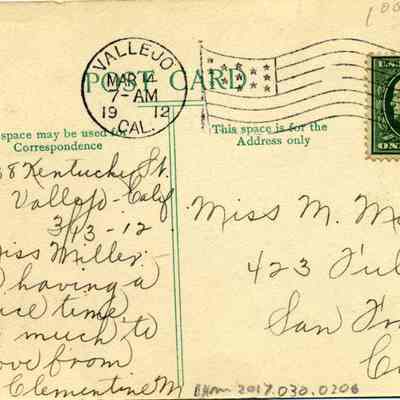 VALLEJO
MAR 14
7-AM
1912
CAL.
POST CARD
U.S.
ONE
space may be used for
Correspondence
This space is for the
Address only
8 Kentucky St.
Vallejo - Calif
3/13-12
iss Miller
having a
ce time
much to
ove from
Clementine M
Miss M. M
423 Ful
San Fra
Ca
2017.030.0206